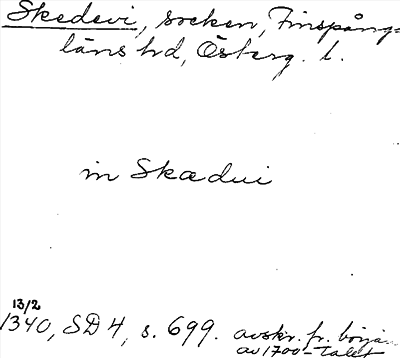 Skedevi, socken, Finspång-
läns hd, Österg. l.
in Skædui
13/2
1340, SD 4, s. 699. avskr. fr. börja
av 1700-talet